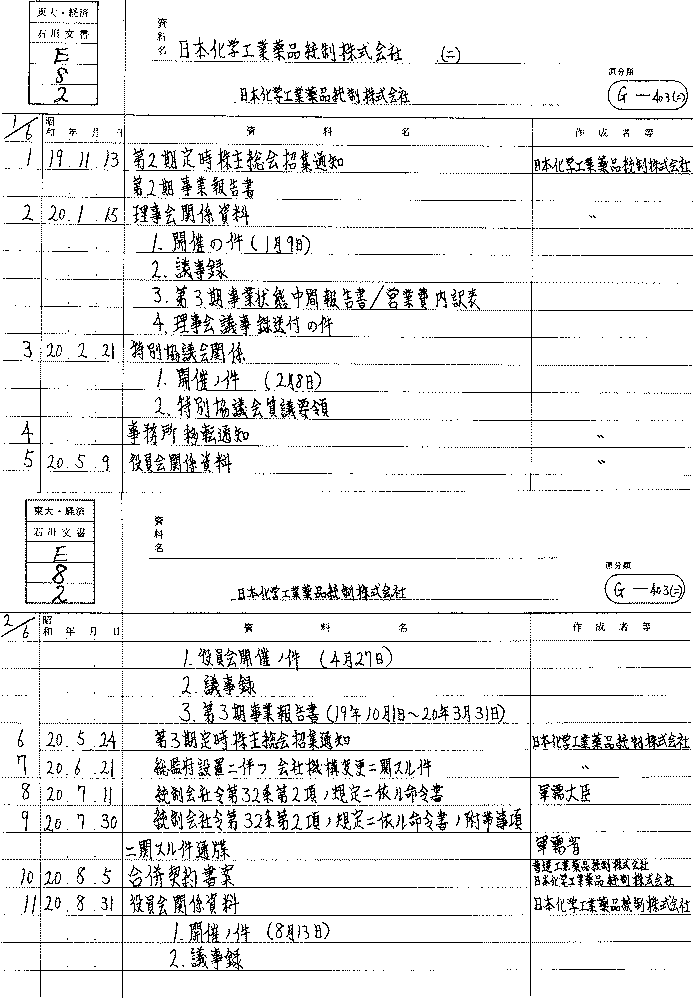 東大・経済
石川文書
E
8
2
資料名 日本化学工業薬品統制株式会社 (二)
日本化学工業薬品統制株式会社
原分類
G-403(二)
1/6 昭和 年 月 日 資 料 名 作成者等
1 19. 11. 13 第2期定時株主総会招集通知 日本化学工業薬品統制株式会社
第2期事業報告書
2 20. 1. 15 理事会関係資料 〃
1. 開催の件 (1月9日)
2. 議事録
3. 第3期事業状態中間報告書/営業費内訳表
4. 理事会議事録送付の件
3 20. 2. 21 特別協議会関係
1. 開催ノ件 (2月8日)
2. 特別協議会質議要領
4 事務所移転通知 〃
5 20. 5. 9 役員会関係資料 〃
東大・経済
石川文書
E
8
2
資料名
日本化学工業薬品統制株式会社
原分類
G-403(二)
2/6 昭和 年 月 日 資 料 名 作成者等
1. 役員会開催ノ件 (4月27日)
2. 議事録
3. 第3期事業報告書(19年10月1日~20年3月31日)
6 20. 5. 24 第3期定時株主総会招集通知 日本化学工業薬品統制株式会社
7 20. 6. 21 総監府設置ニ伴フ会社機構変更ニ関スル件 〃
8 20. 7. 11 統制会社令第32条第2項ノ規定ニ依ル命令書 軍需大臣
9 20. 7. 30 統制会社令第32条第2項ノ規定ニ依ル命令書ノ附帯事項
ニ関スル件通牒 軍需省
10 20. 8. 5 合併契約書案 工業薬品統制株式会社
日本化学工業薬品統制株式会社
11 20. 8. 31 役員会関係資料 日本化学工業薬品統制株式会社
1. 開催ノ件 (8月13日)
2. 議事録